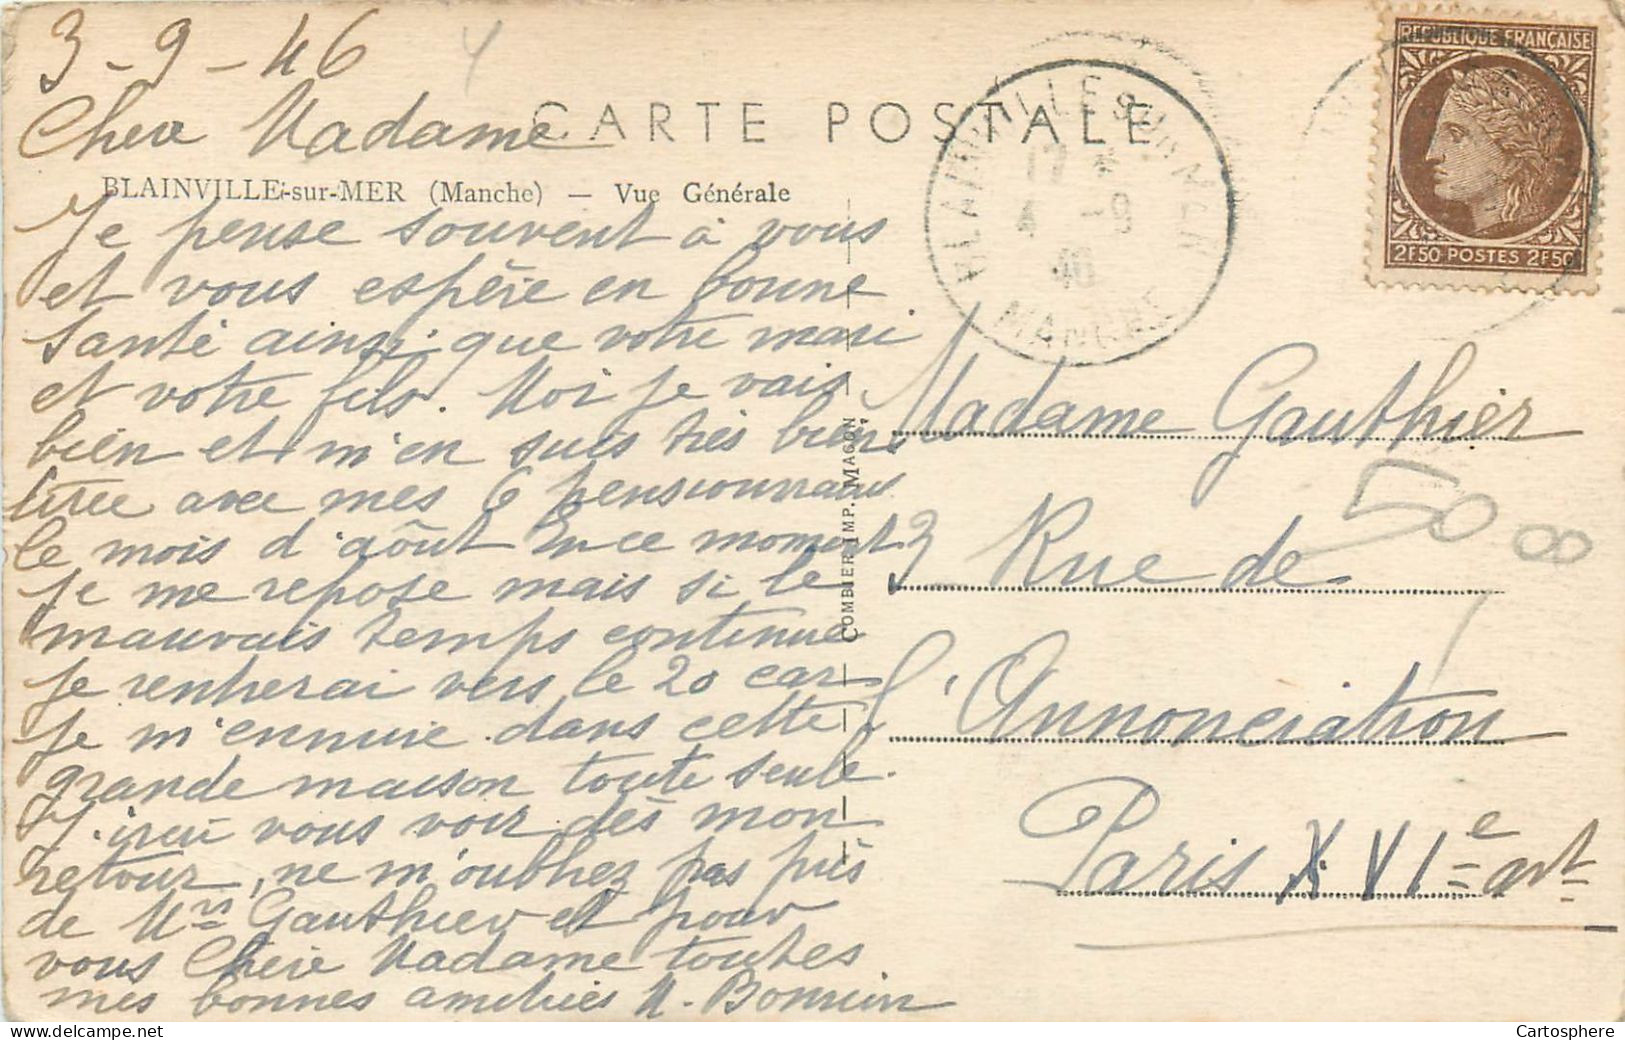 3-9-46
Chere Madame
CARTE POSTALE
BLAINVILLE-sur-MER (Manche) — Vue Générale
Je pense souvent à vous
et vous espère en bonne
santé ainsi que votre mari
et votre fils. Moi je vais
bien et m'en suis très bien
tirée avec mes 6 pensionnaires
le mois d'aôut En ce moment
je me repose mais si le
mauvais temps continue
je rentrerai vers le 20 car
je m'ennuie dans cette
grande maison toute seule.
J'irai vous voir dès mon
retour, ne m'oubliez pas près
de Mrs Gauthier et pour
vous Chère Madame toutes
mes bonnes amitiés M.
COMBIER IMP. MACON
BLAINVILLE SUR MER
17 *
4 -9
46
MANCHE
REPUBLIQUE FRANÇAISE
2F50 POSTES 2F50
Madame Gauthier
3 Rue de
l'Annonciation
Paris XVIe art
50
Cartosphere